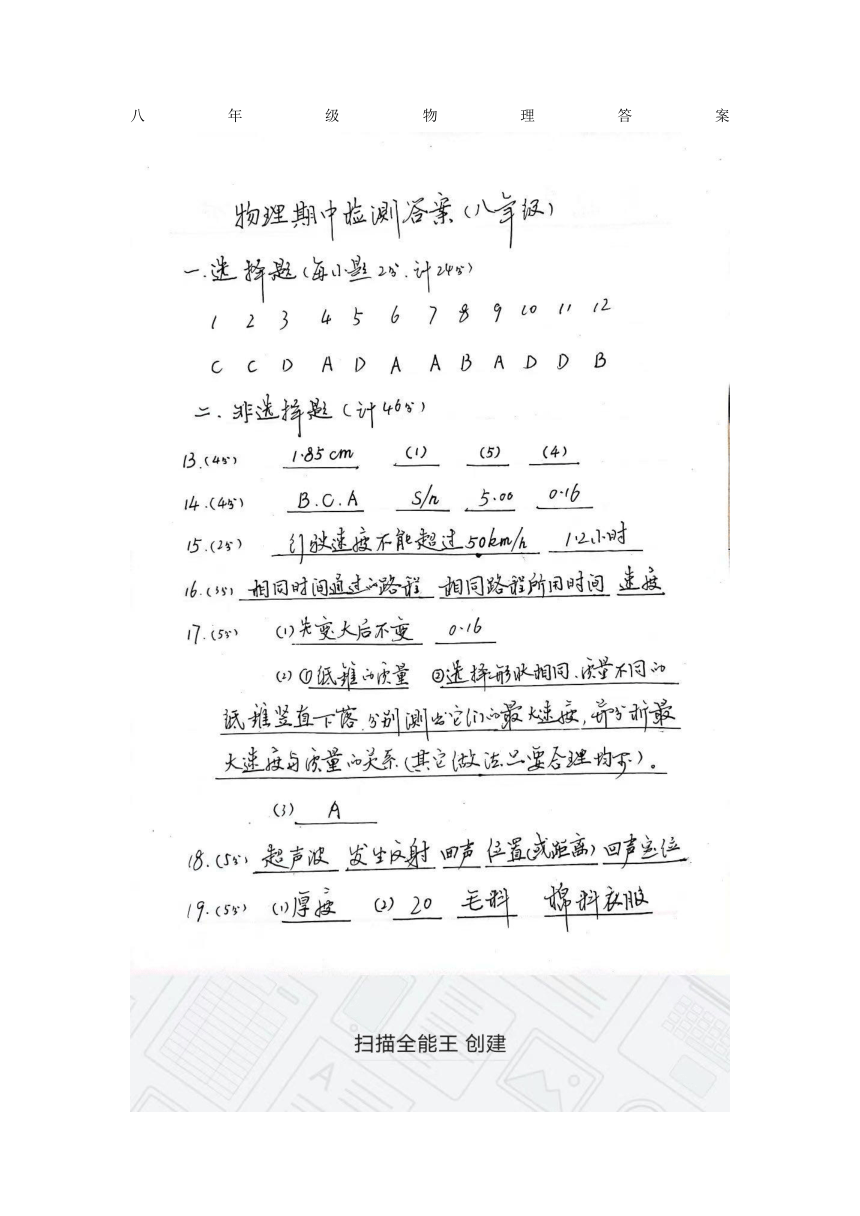 八年级物理答案
物理期中检测答案(八年级)
一.选择题(每小题2分.计24分)
1 2 3 4 5 6 7 8 9 10 11 12
C C D A D A A B A D D B
二.非选择题(计46分)
13.(4分) 1.85cm (1) (5) (4)
14.(4分) B.C.A S/n 5.00 0.16
15.(2分) 行驶速度不能超过50km/h 1.2小时
16.(3分) 相同时间通过的路程 相同路程所用时间 速度
17.(5分) (1)先变大后不变 0.16
(2)①纸锥的质量 ②选择形状相同、质量不同的
纸锥竖直下落,分别测出它们的最大速度,并分析最
大速度与质量的关系(其它做法只要合理均可)。
(3) A
18.(5分) 超声波 发生反射 回声 位置(或距离) 回声定位
19.(5分) (1)厚度 (2) 20 毛料 棉料衣服
扫描全能王 创建